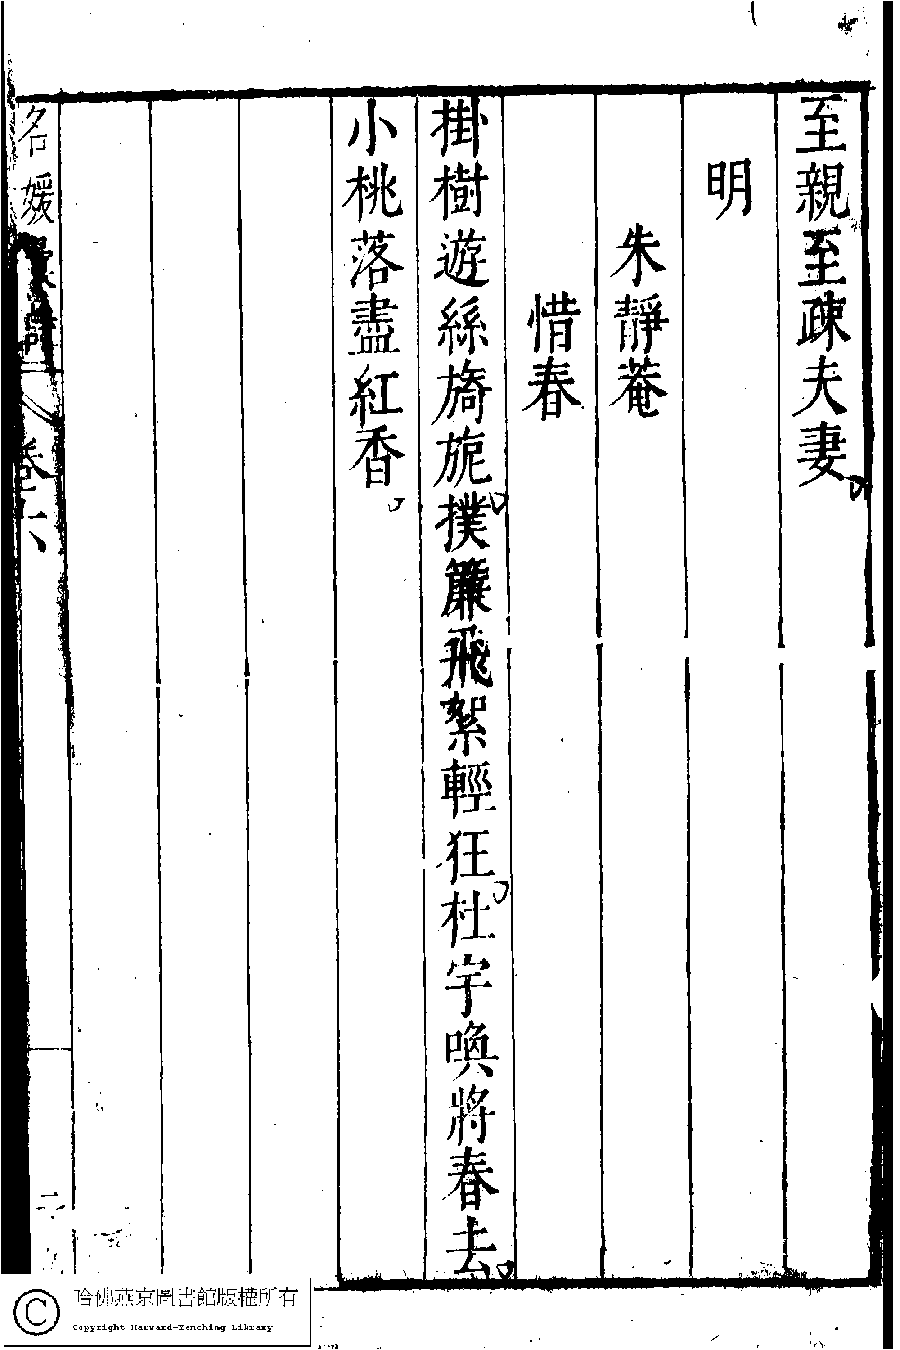 至親至疎夫妻
明
朱靜菴
惜春
掛樹遊絲旖旎撲簾飛絮輕狂杜宇喚將春去
小桃落盡紅香
名媛
卷六
二
哈佛燕京圖書館版權所有
Copyright Harvard-Yenching Library